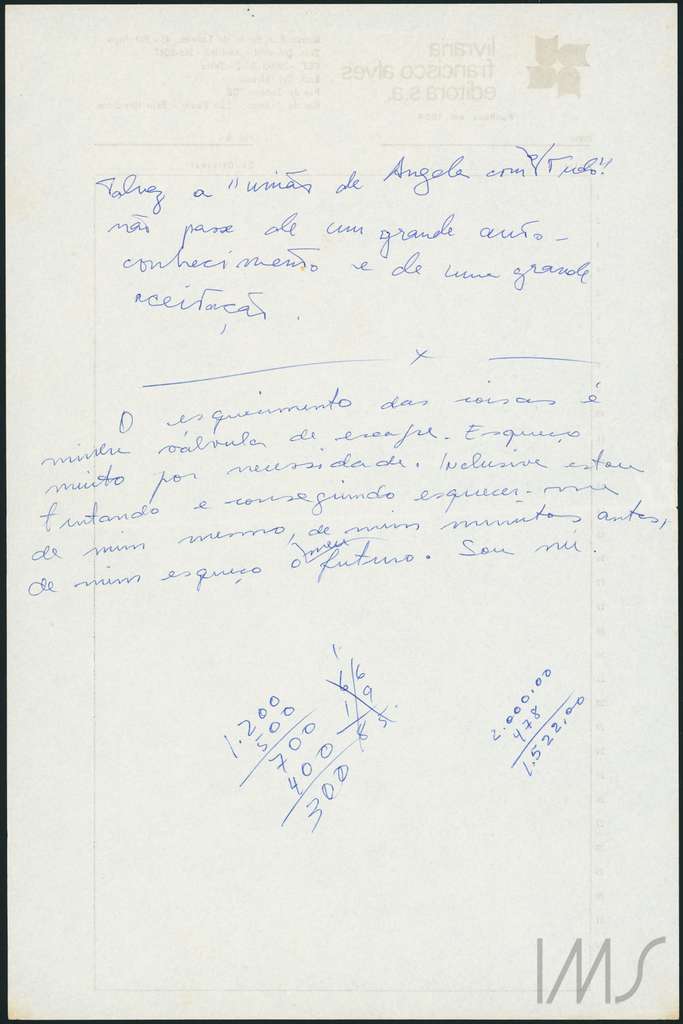 livraria
francisco alves
editora s.a.
Talvez a "união de Angela com o Tudo"
não passe de um grande auto-
conhecimento e de uma grande
aceitação.
x
O esquecimento das coisas é
minha válvula de escape. Esqueço
muito por necessidade. Inclusive estou
tentando e conseguindo esquecer-me
de mim mesmo, de mim minutos antes,
de mim esqueço o meu futuro. Sou nu.
1.200
500
700
400
300
1
66
19
85
2.000,00
478
1.522,00
IMS